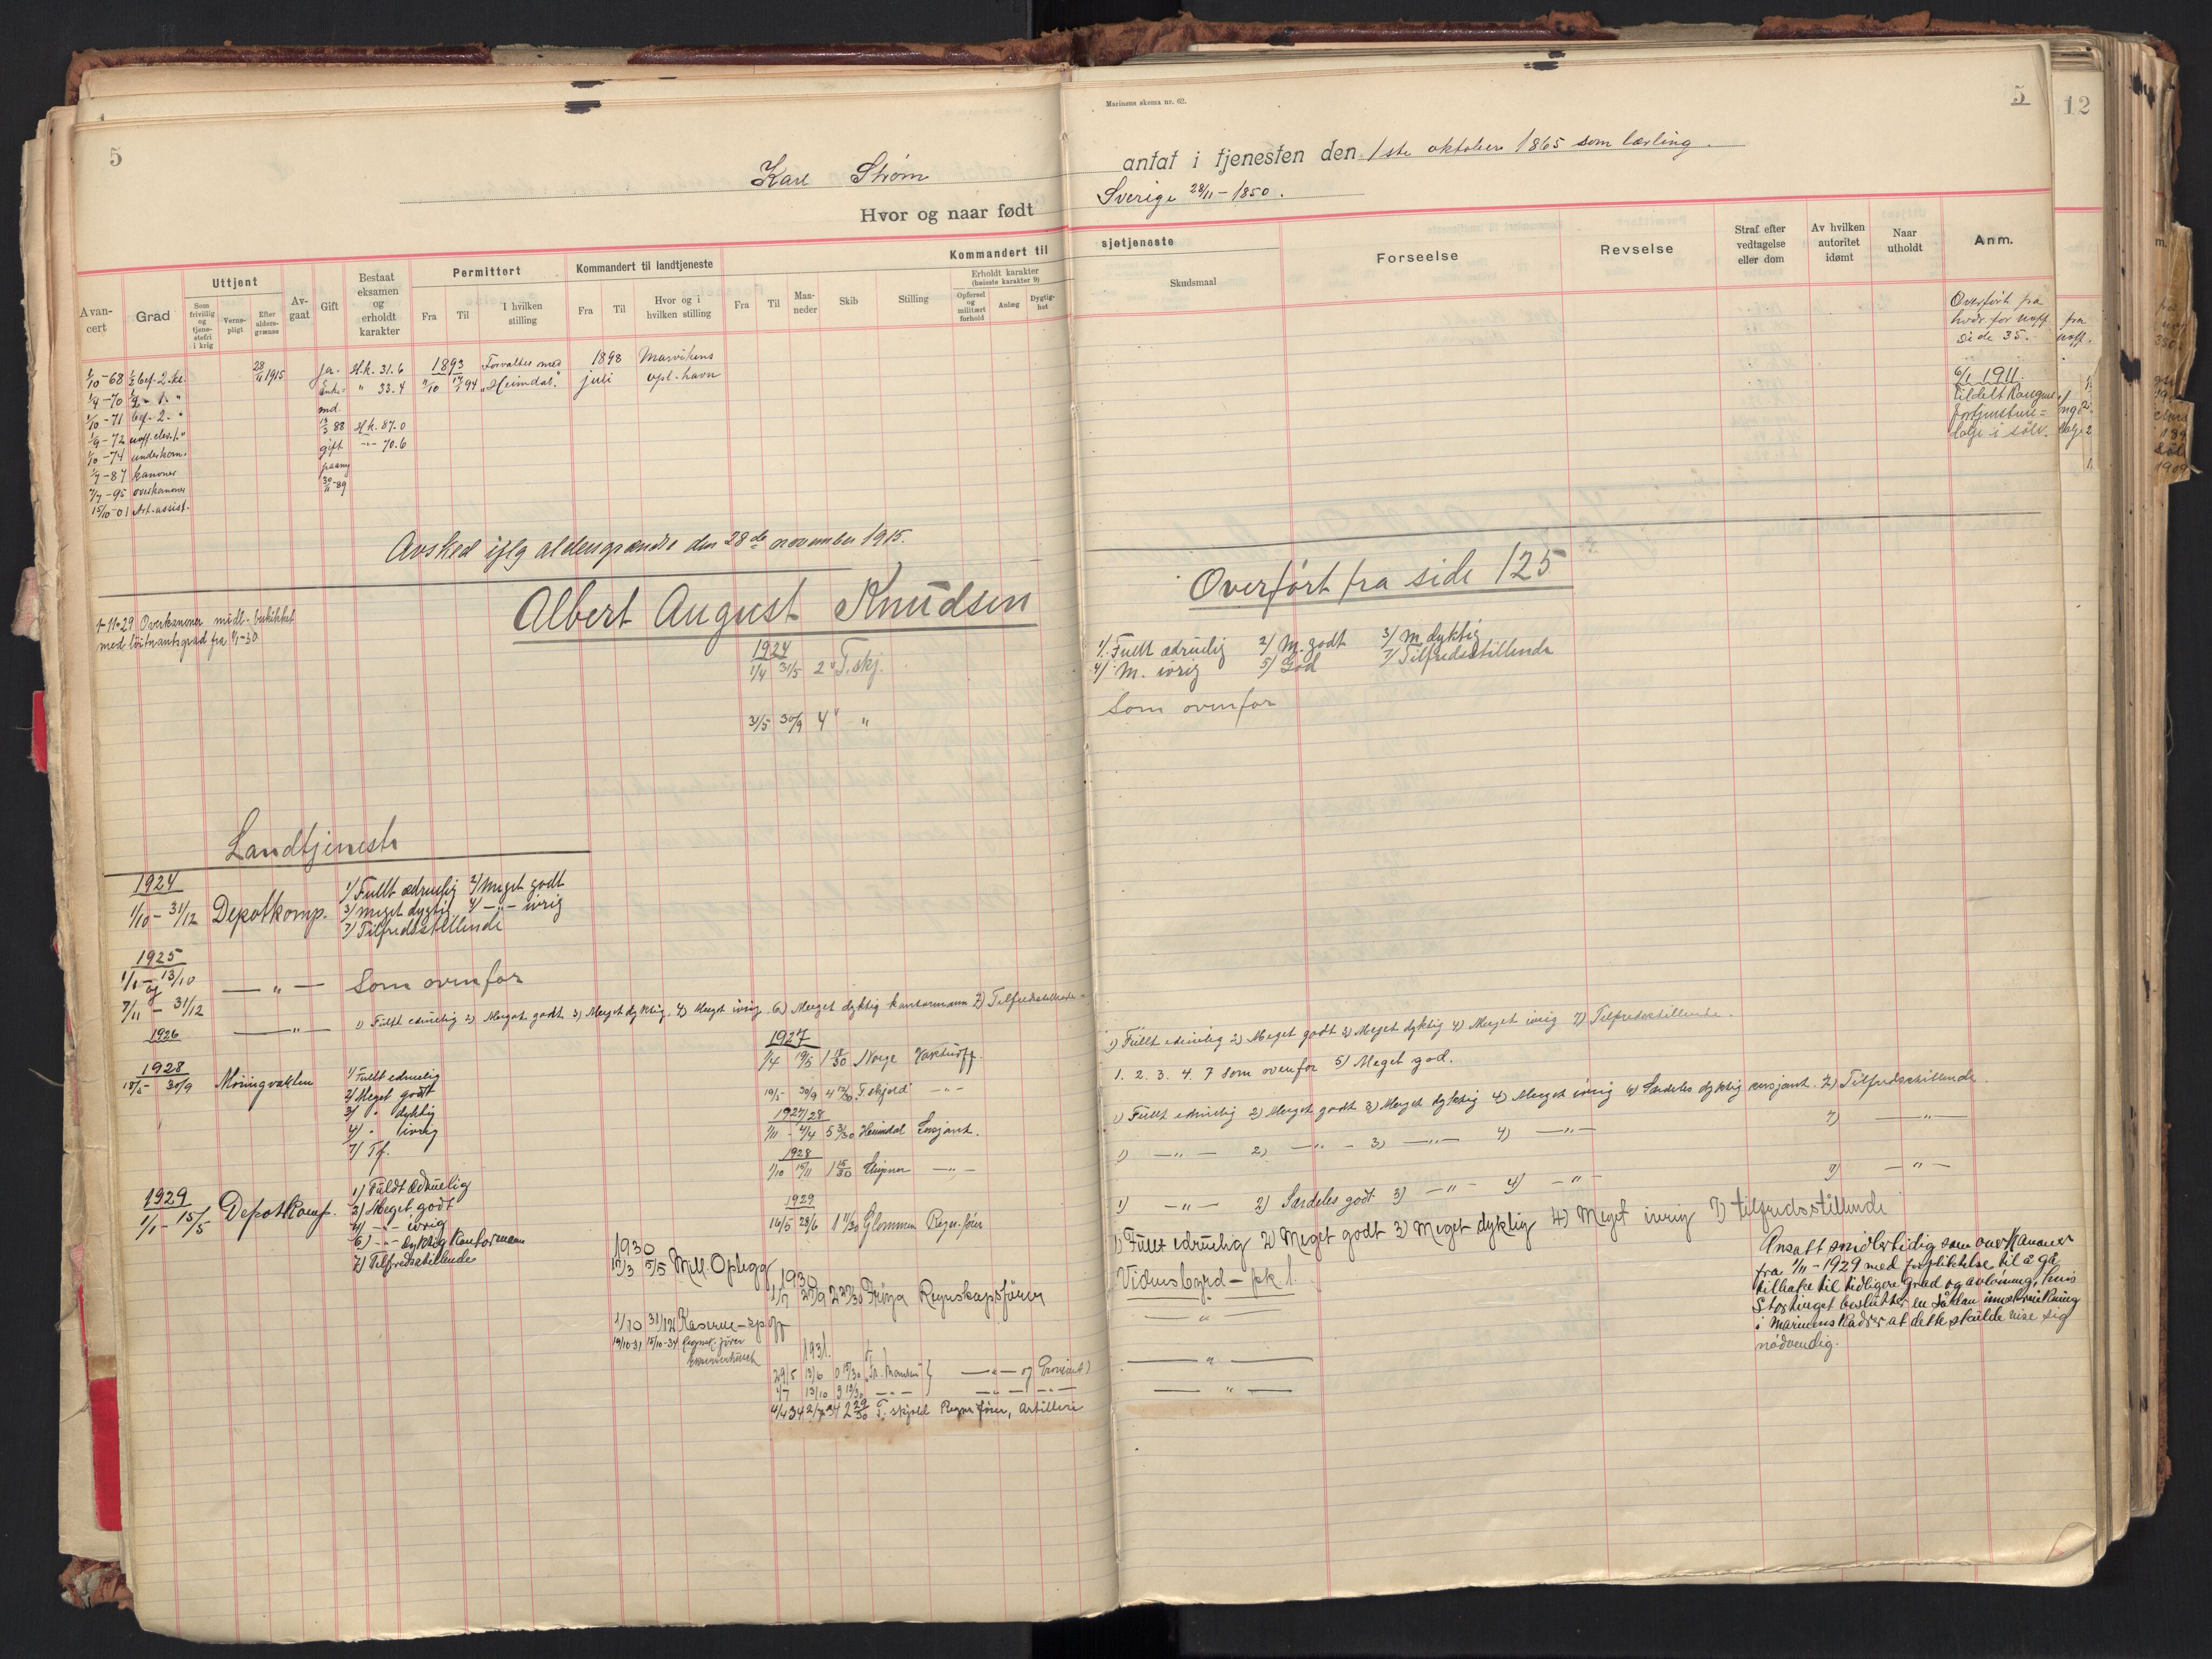 5
Karl Strøm
Hvor og naar født
Kommandert til
Avancert
Grad
Uttjent
Som frivillig og tjenestefri i krig
Vernepligt
Efter aldersgrænse
Avgaat
Gift
Bestaat eksamen og erholdt karakter
Permittert
Fra
Til
I hvilken stilling
Kommandert til landtjeneste
Fra
Til
Hvor og i hvilken stilling
Fra
Til
Maaneder
Skib
Stilling
Erholdt karakter (høieste karakter 9)
Opførsel og militært forhold
Anlæg
Dygtighet
1/10-68 1/2 bef. 2. kl.
1/9-70 1/2 " 1. "
1/10-71 bef. 2. "
1/9-72 uoff. elev. 1. "
1/10-74 underkan.
1/7-87 kanoner
1/7-95 overkanoner
15/10-01 Art. assist.
28/11 1915
ja.
Enkemd.
13/3 88
gift
paany
30/11-89
H.k. 31.6
" 33.4
H.k. 87.0
-"- 70.6
1893
1/10 17/1 94
Forvalter med
"Heimdal."
1898
juli
Marvikens
opl. havn
Avsked ifølg aldersgrændse den 28de november 1915.
1-11-29 Overkanoner midl. beskikket
med løitnantsgrad fra 1/1-30
Albert August Knudsen
1924
1/4 31/5 2 " T. skj.
31/5 30/9 4 " "
Landtjeneste
1924
1/10 - 31/12 Depotkomp.
1/ Fullt ædruelig 2/ Meget godt
3/ meget dygtig 4/ -"- ivrig
7/ Tilfredsstillende
1925
1/1 - 13/10
og
7/11 - 31/12
— " — Som ovenfor
1926 — " — 1) Fullt edruelig 2) Meget godt 3) Meget dyktig, 4) Meget ivrig. 6) Meget dyktig kontormann 7) Tilfredsstillende
1928
18/5 - 30/9 Møringvakten
1/ Fullt edruelig
2/ Meget godt
3/ " dyktig
4/ " ivrig
7/ Tf.
1929
1/1 - 15/5 Depotkomp.
1) Fuldt Ædruelig
2) Meget godt
4) -"- ivrig
6) -"- dyktig Kontormann
7) Tilfredsstillende
1927
1/4 19/5 1 18/30 Norge Vaktuoff.
19/5 - 30/9 4 12/30 T. skjold -"-
1927/28
1/11 - 4/4 5 3/30 Heimdal Sersjant.
1928
1/10 15/11 1 15/30 Sleipner -"-
1929
16/5 28/6 1 11/30 Glommen Regn. fører
1930
17/3 5/5 Mell. Oplegg
1930
1/7 27/9 2 27/30 Frøya Regnskapsfører
1/10 31/12 Kaserne-
19/10-31 15/10-34 Regnsk. fører
1931.
29/5 13/6 0 15/30 — " — og Proviant)
4/7 13/10 3 13/30 — " — — " —
4/4 34 2/7 34 2 29/30 T. skjold Regns fører, Artilleri
Marinens skema nr. 62.
5
antat i tjenesten den 1ste oktober 1865 som lærling.
Sverige 28/11-1850.
sjøtjeneste
Skudsmaal
Forseelse
Revselse
Straf efter vedtagelse eller dom
Av hvilken autoritet idømt
Naar utholdt
Anm.
Overført fra
hvdr. for uoff.
side 35.
6/1 1911.
tildelt Kongens
fortjenstme=
dalje i sølv.
Overført fra side 125
1/. Fullt ædruelig 2/ M. godt 3/ M. dyktig
4/ M. ivrig 5/ God 7/ Tilfredsstillende
Som ovenfor
1) Fullt edruelig 2) Meget godt 3) Meget dyktig 4) Meget ivrig 7) Tilfredsstillende.
1. 2. 3. 4. 7 som ovenfor 5) Meget god.
1) Fullt edruelig 2) Meget godt 3) Meget dyktig 4) Meget ivrig 6) Særdeles dyktig sersjant. 7) Tilfredsstillende.
1) — " — 2) — " — 3) — " — 4) — " — 7) — " —
1) — " — 2) Særdeles godt 3) — " — 4) — " — 7) — " —
1) Fullt edruelig 2) Meget godt 3) Meget dyktig 4) Meget ivrig 7) tilfredsstillende
Vidnesbyrd - pk. 1.
— " —
— " —
— " —
Ansatt midlertidig som overkanoner
fra 1/11-1929 med forpliktelse til å gå
tilbake til tidligere grad og avlønning, hvis
Stortinget beslutter en sådan innskrenkning
i Marinens kadrer at dette skulde vise sig
nødvendig.
12